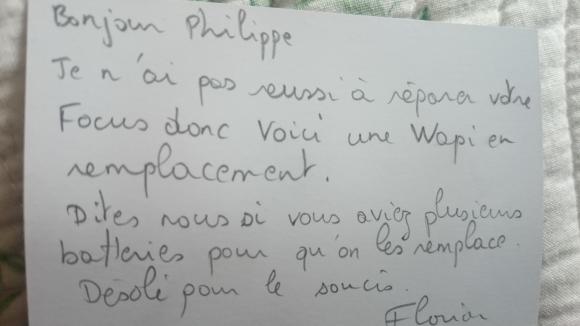 Bonjour Philippe
Je n'ai pas reussi à réparer votre
Focus donc voici une Wapi en
remplacement.
Dites nous si vous aviez plusieurs
batteries pour qu'on les remplace.
Désolé pour le soucis.
Florian